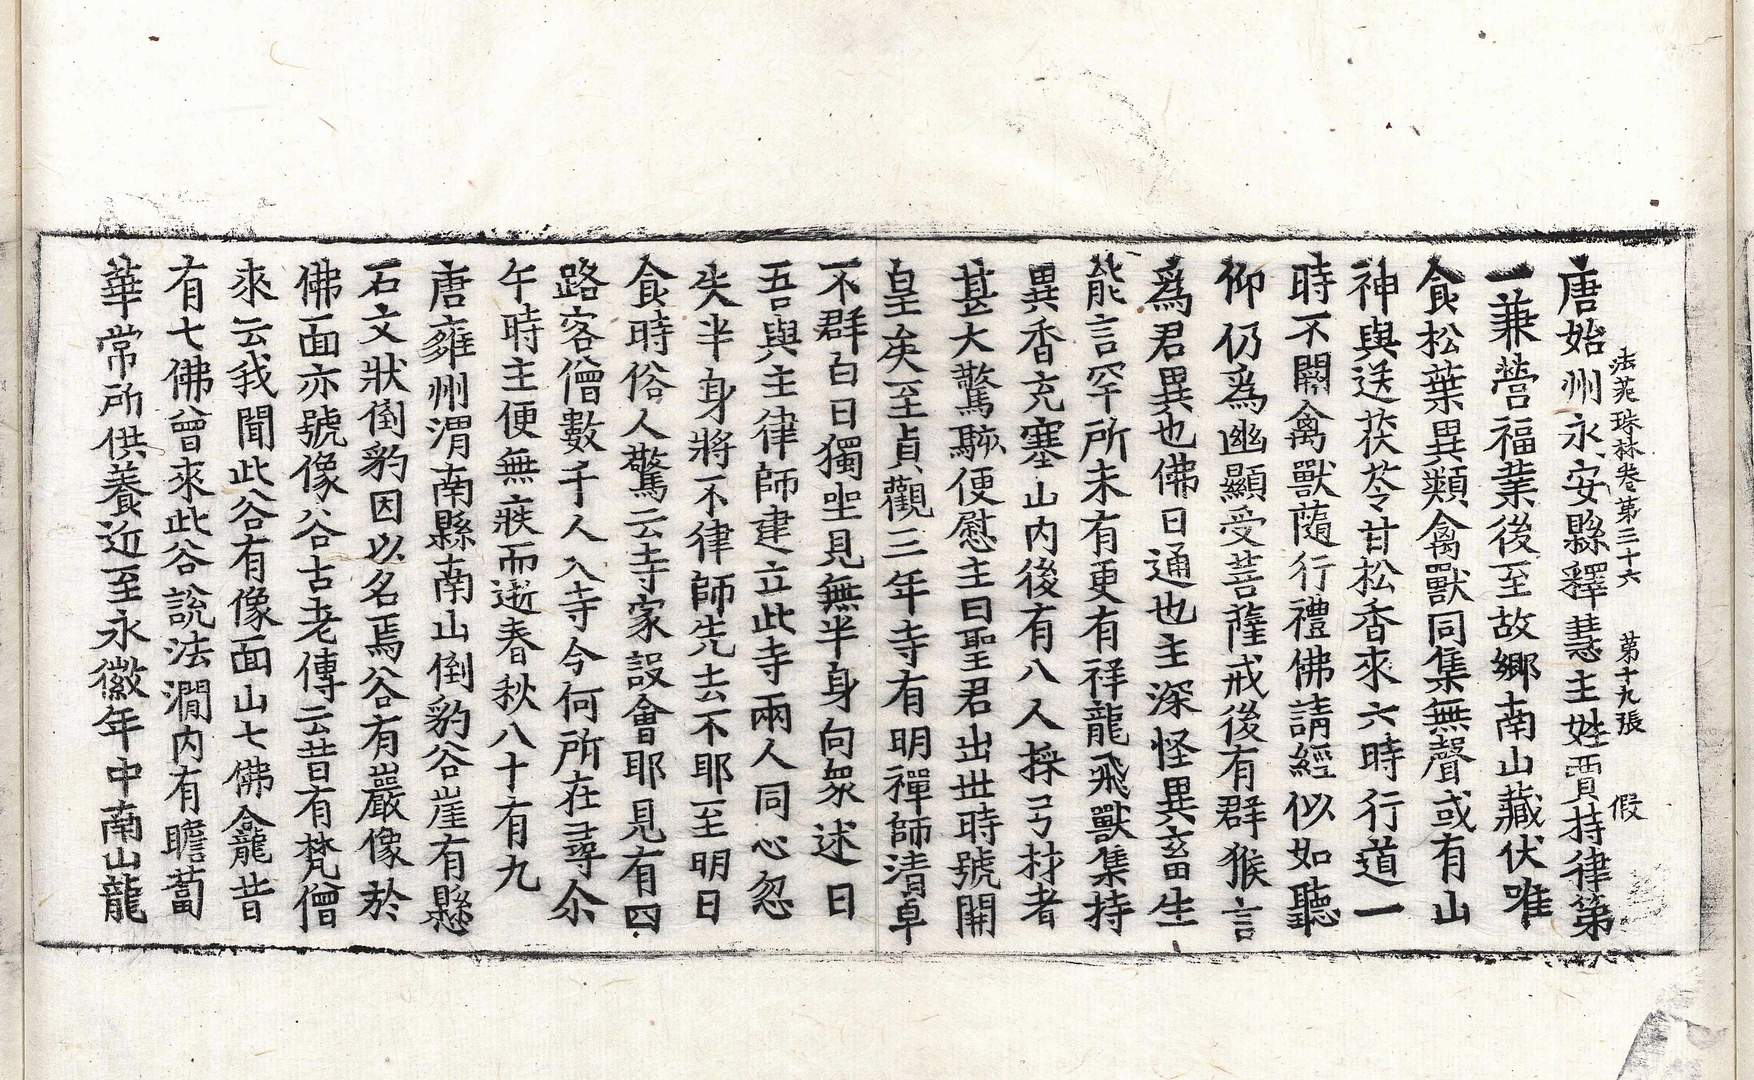 法苑珠林卷第三十六　第十九張　假
唐始州永安縣釋慧主姓賈持律第
一兼營福業後至故鄉南山藏伏唯
食松葉異類禽獸同集無聲或有山
神與送茯苓甘松香來六時行道一
時不闕禽獸隨行禮佛請經似如聽
仰仍爲幽顯受菩薩戒後有群猴言
爲君異也佛日通也主深怪異畜生
能言罕所未有更有祥龍飛獸集持
異香充塞山内後有八人採弓材者
甚大驚駭便慰主曰聖君出世時號開
皇矣至貞觀三年寺有明禪師清卓
不群白日獨坐見無半身向衆述曰
吾與主律師建立此寺兩人同心忽
失半身將不律師先去不耶至明日
食時俗人驚云寺家設會耶見有四
路客僧數千人入寺今何所在尋尒
午時主便無疾而逝春秋八十有九
唐雍州渭南縣南山倒豹谷崖有懸
石文狀倒豹因以名焉谷有巖像於
佛面亦號像谷古老傳云昔有梵僧
來云我聞此谷有像面山七佛龕昔
有七佛曾來此谷說法澗内有瞻蔔
華常所供養近至永徽年中南山龍